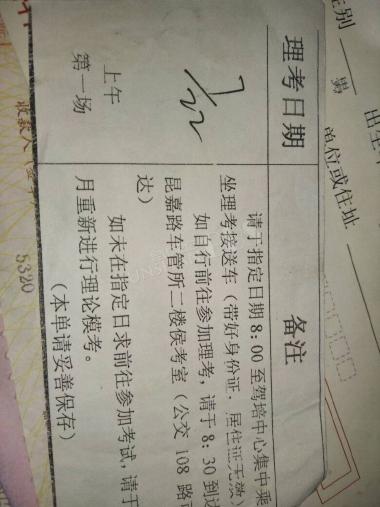 性别 男
出生
单位或住址
理考日期
备注
7/22
上午
第一场
请于指定日期8:00至驾培中心集中乘
坐理考接送车（带好身份证，居住证无效）
如自行前往参加理考，请于8:30到达
昆嘉路车管所二楼侯考室（公交108路
达）
如未在指定日求前往参加考试，请于
月重新进行理论模考。
（本单请妥善保存）
收款人
5320